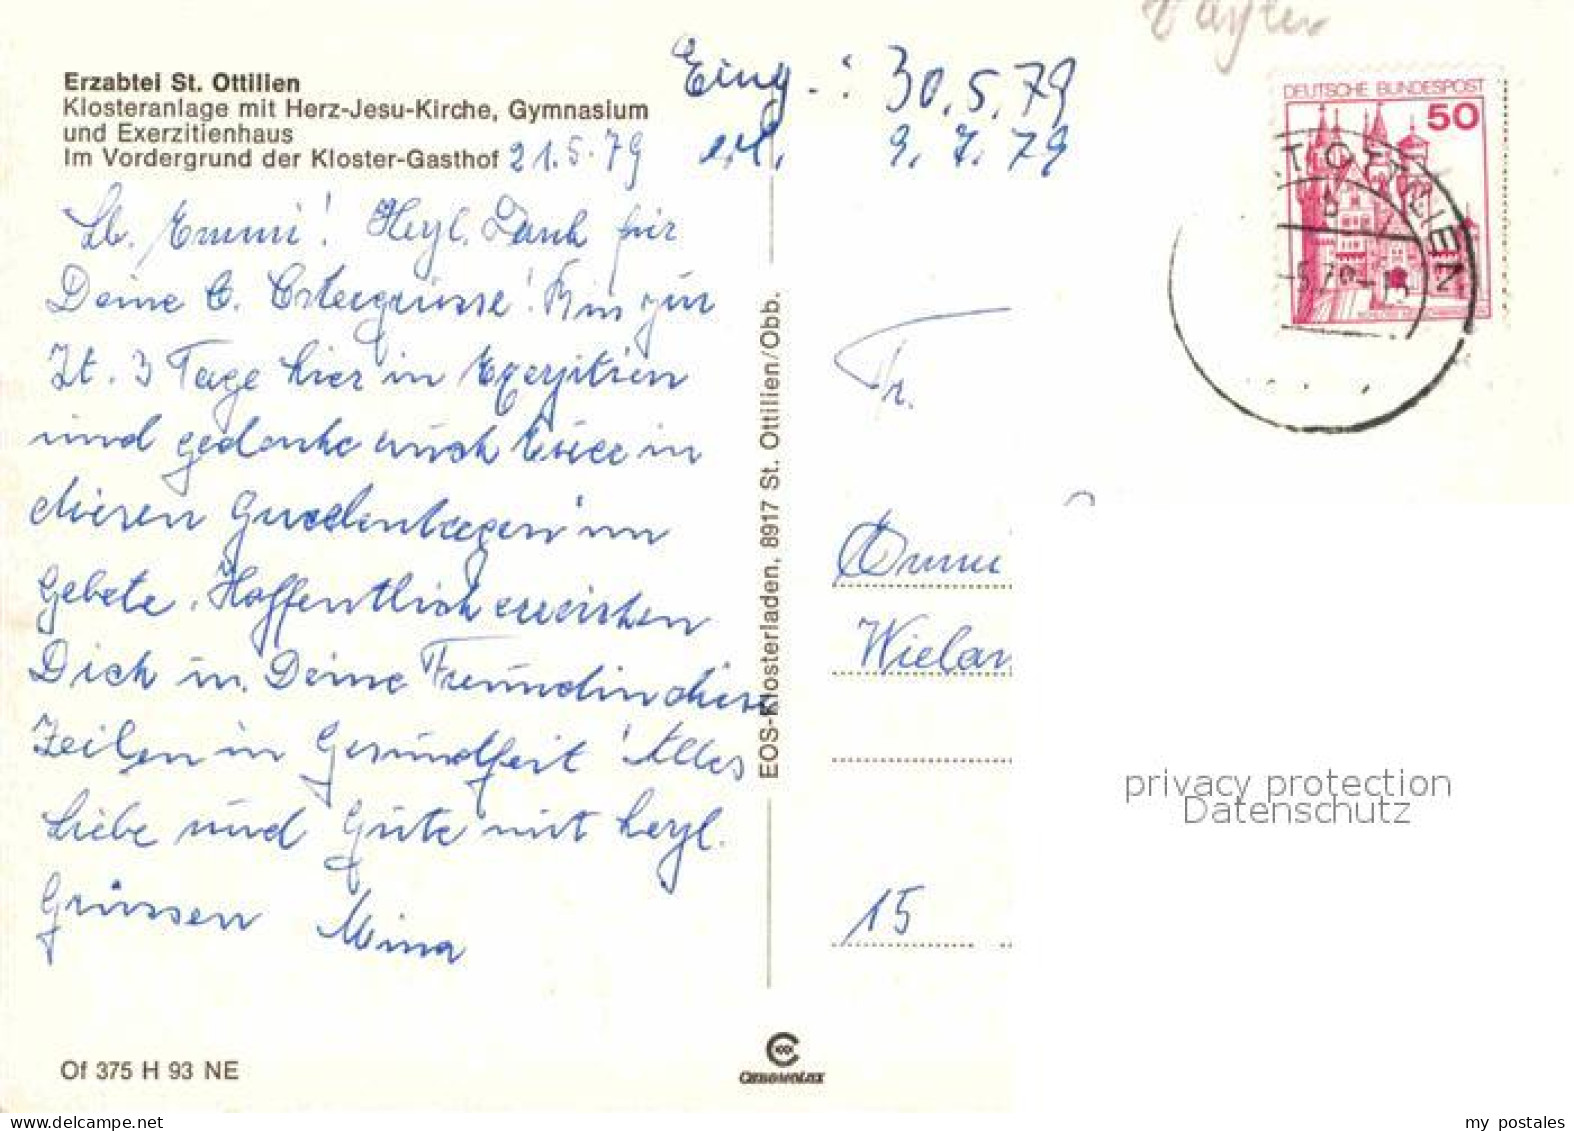 Erzabtei St. Ottilien
Klosteranlage mit Herz-Jesu-Kirche, Gymnasium
und Exerzitienhaus
Im Vordergrund der Kloster-Gasthof 21.5.79
Lb. Emmi! Herzl. Dank für
Deine lb. Ostergrüsse! Bin zur
Zt. 3 Tage hier in Exerzitien
und gedenke auch Euer in
diesen Gnadentagen im
Gebete. Hoffentlich erreichen
Dich u. Deine Freundin diese
Zeilen in Gesundheit! Alles
Liebe und Gute mit herzl.
Grüssen Mina
Of 375 H 93 NE
EOS-Klosterladen, 8917 St. Ottilien/Obb.
Eing.: 30.5.79
erl. 9.7.79
DEUTSCHE BUNDESPOST
50
ST OTTILIEN
b
Fr.
Emmi
Wielan
15
privacy protection
Datenschutz
my postales